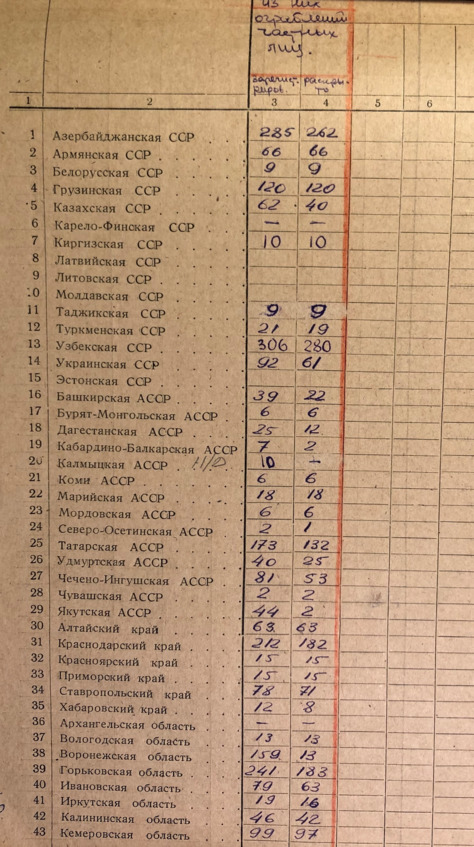 из них
ограблений
частных
лиц.
зарегист- раскры-
риров. то
1 2 3 4 5 6
1 Азербайджанская ССР 285 262
2 Армянская ССР 66 66
3 Белорусская ССР 9 9
4 Грузинская ССР 120 120
5 Казахская ССР 62 40
6 Карело-Финская ССР — —
7 Киргизская ССР 10 10
8 Латвийская ССР
9 Литовская ССР
10 Молдавская ССР
11 Таджикская ССР 9 9
12 Туркменская ССР 21 19
13 Узбекская ССР 306 280
14 Украинская ССР 92 61
15 Эстонская ССР
16 Башкирская АССР 39 22
17 Бурят-Монгольская АССР 6 6
18 Дагестанская АССР 25 12
19 Кабардино-Балкарская АССР 7 2
20 Калмыцкая АССР 10 —
21 Коми АССР 6 6
22 Марийская АССР 18 18
23 Мордовская АССР 6 6
24 Северо-Осетинская АССР 2 1
25 Татарская АССР 173 132
26 Удмуртская АССР 40 25
27 Чечено-Ингушская АССР 81 53
28 Чувашская АССР 2 2
29 Якутская АССР 44 2
30 Алтайский край 63 63
31 Краснодарский край 212 182
32 Красноярский край 15 15
33 Приморский край 15 15
34 Ставропольский край 78 71
35 Хабаровский край 12 8
36 Архангельская область — —
37 Вологодская область 13 13
38 Воронежская область 159 13
39 Горьковская область 241 183
40 Ивановская область 79 63
41 Иркутская область 19 16
42 Калининская область 46 42
43 Кемеровская область 99 97